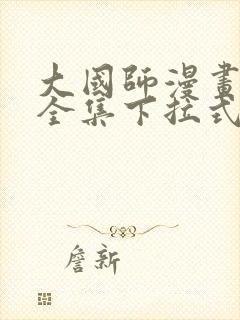 大國師漫畫
全集下拉式
詹新